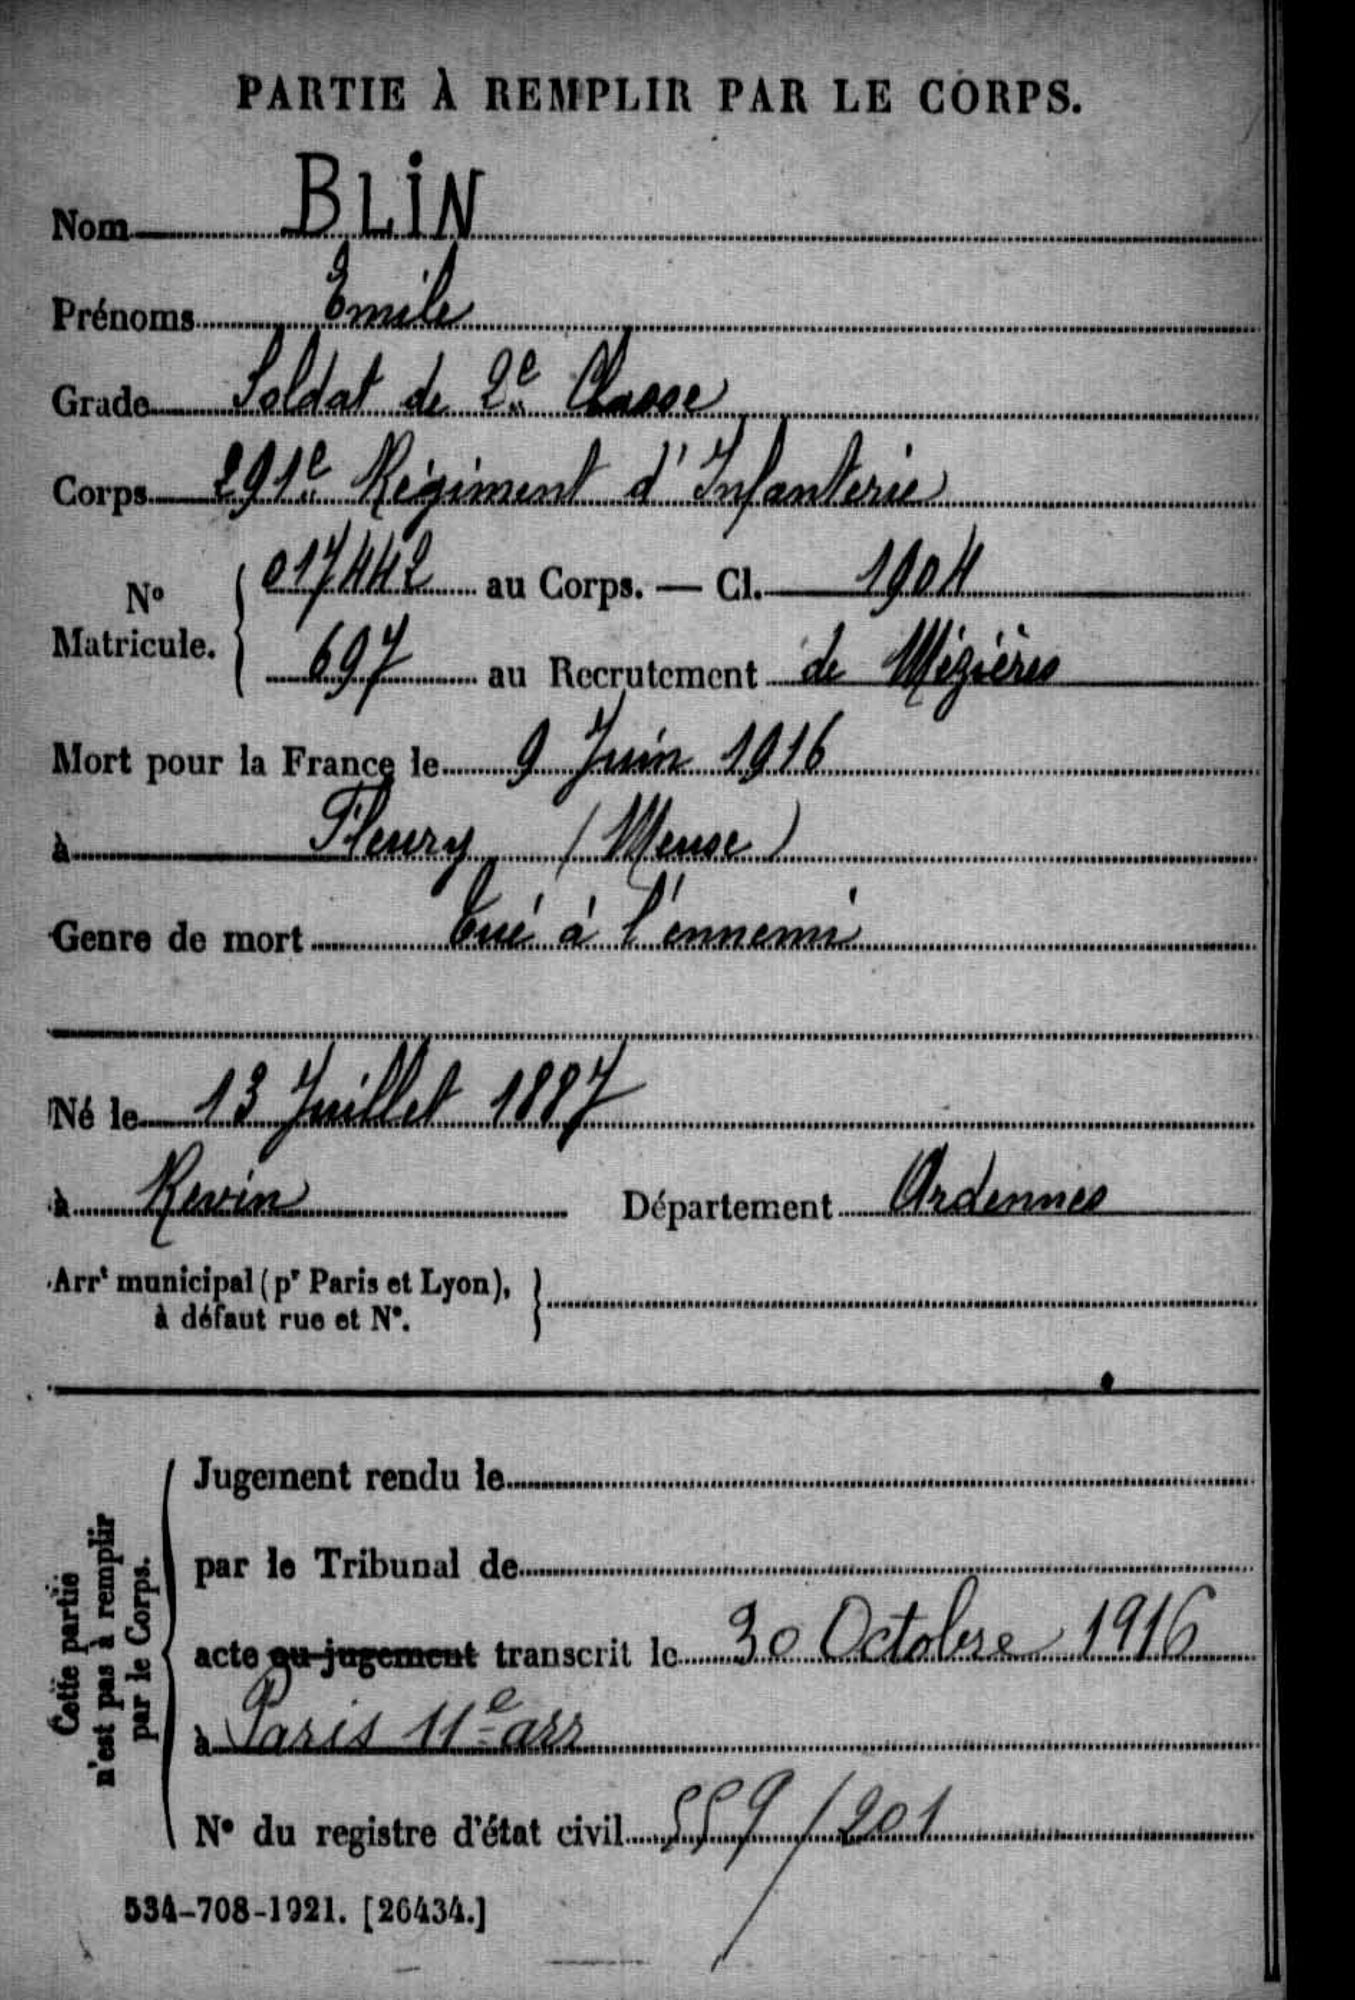 PARTIE À REMPLIR PAR LE CORPS.
Nom BLIN
Prénoms Emile
Grade Soldat de 2e Classe
Corps 291e Régiment d'Infanterie
No Matricule. { 017442 au Corps. — Cl. 1904
697 au Recrutement de Mézières
Mort pour la France le 9 Juin 1916
à Fleury (Meuse)
Genre de mort Tué à l'ennemi
Né le 13 Juillet 1887
à Revin Département Ardennes
Arrt municipal (pr Paris et Lyon),
à défaut rue et No.
Cette partie
n'est pas à remplir
par le Corps.
Jugement rendu le
par le Tribunal de
acte ou jugement transcrit le 30 Octobre 1916
à Paris 11e arr
No du registre d'état civil 559/201
534-708-1921. [26434.]